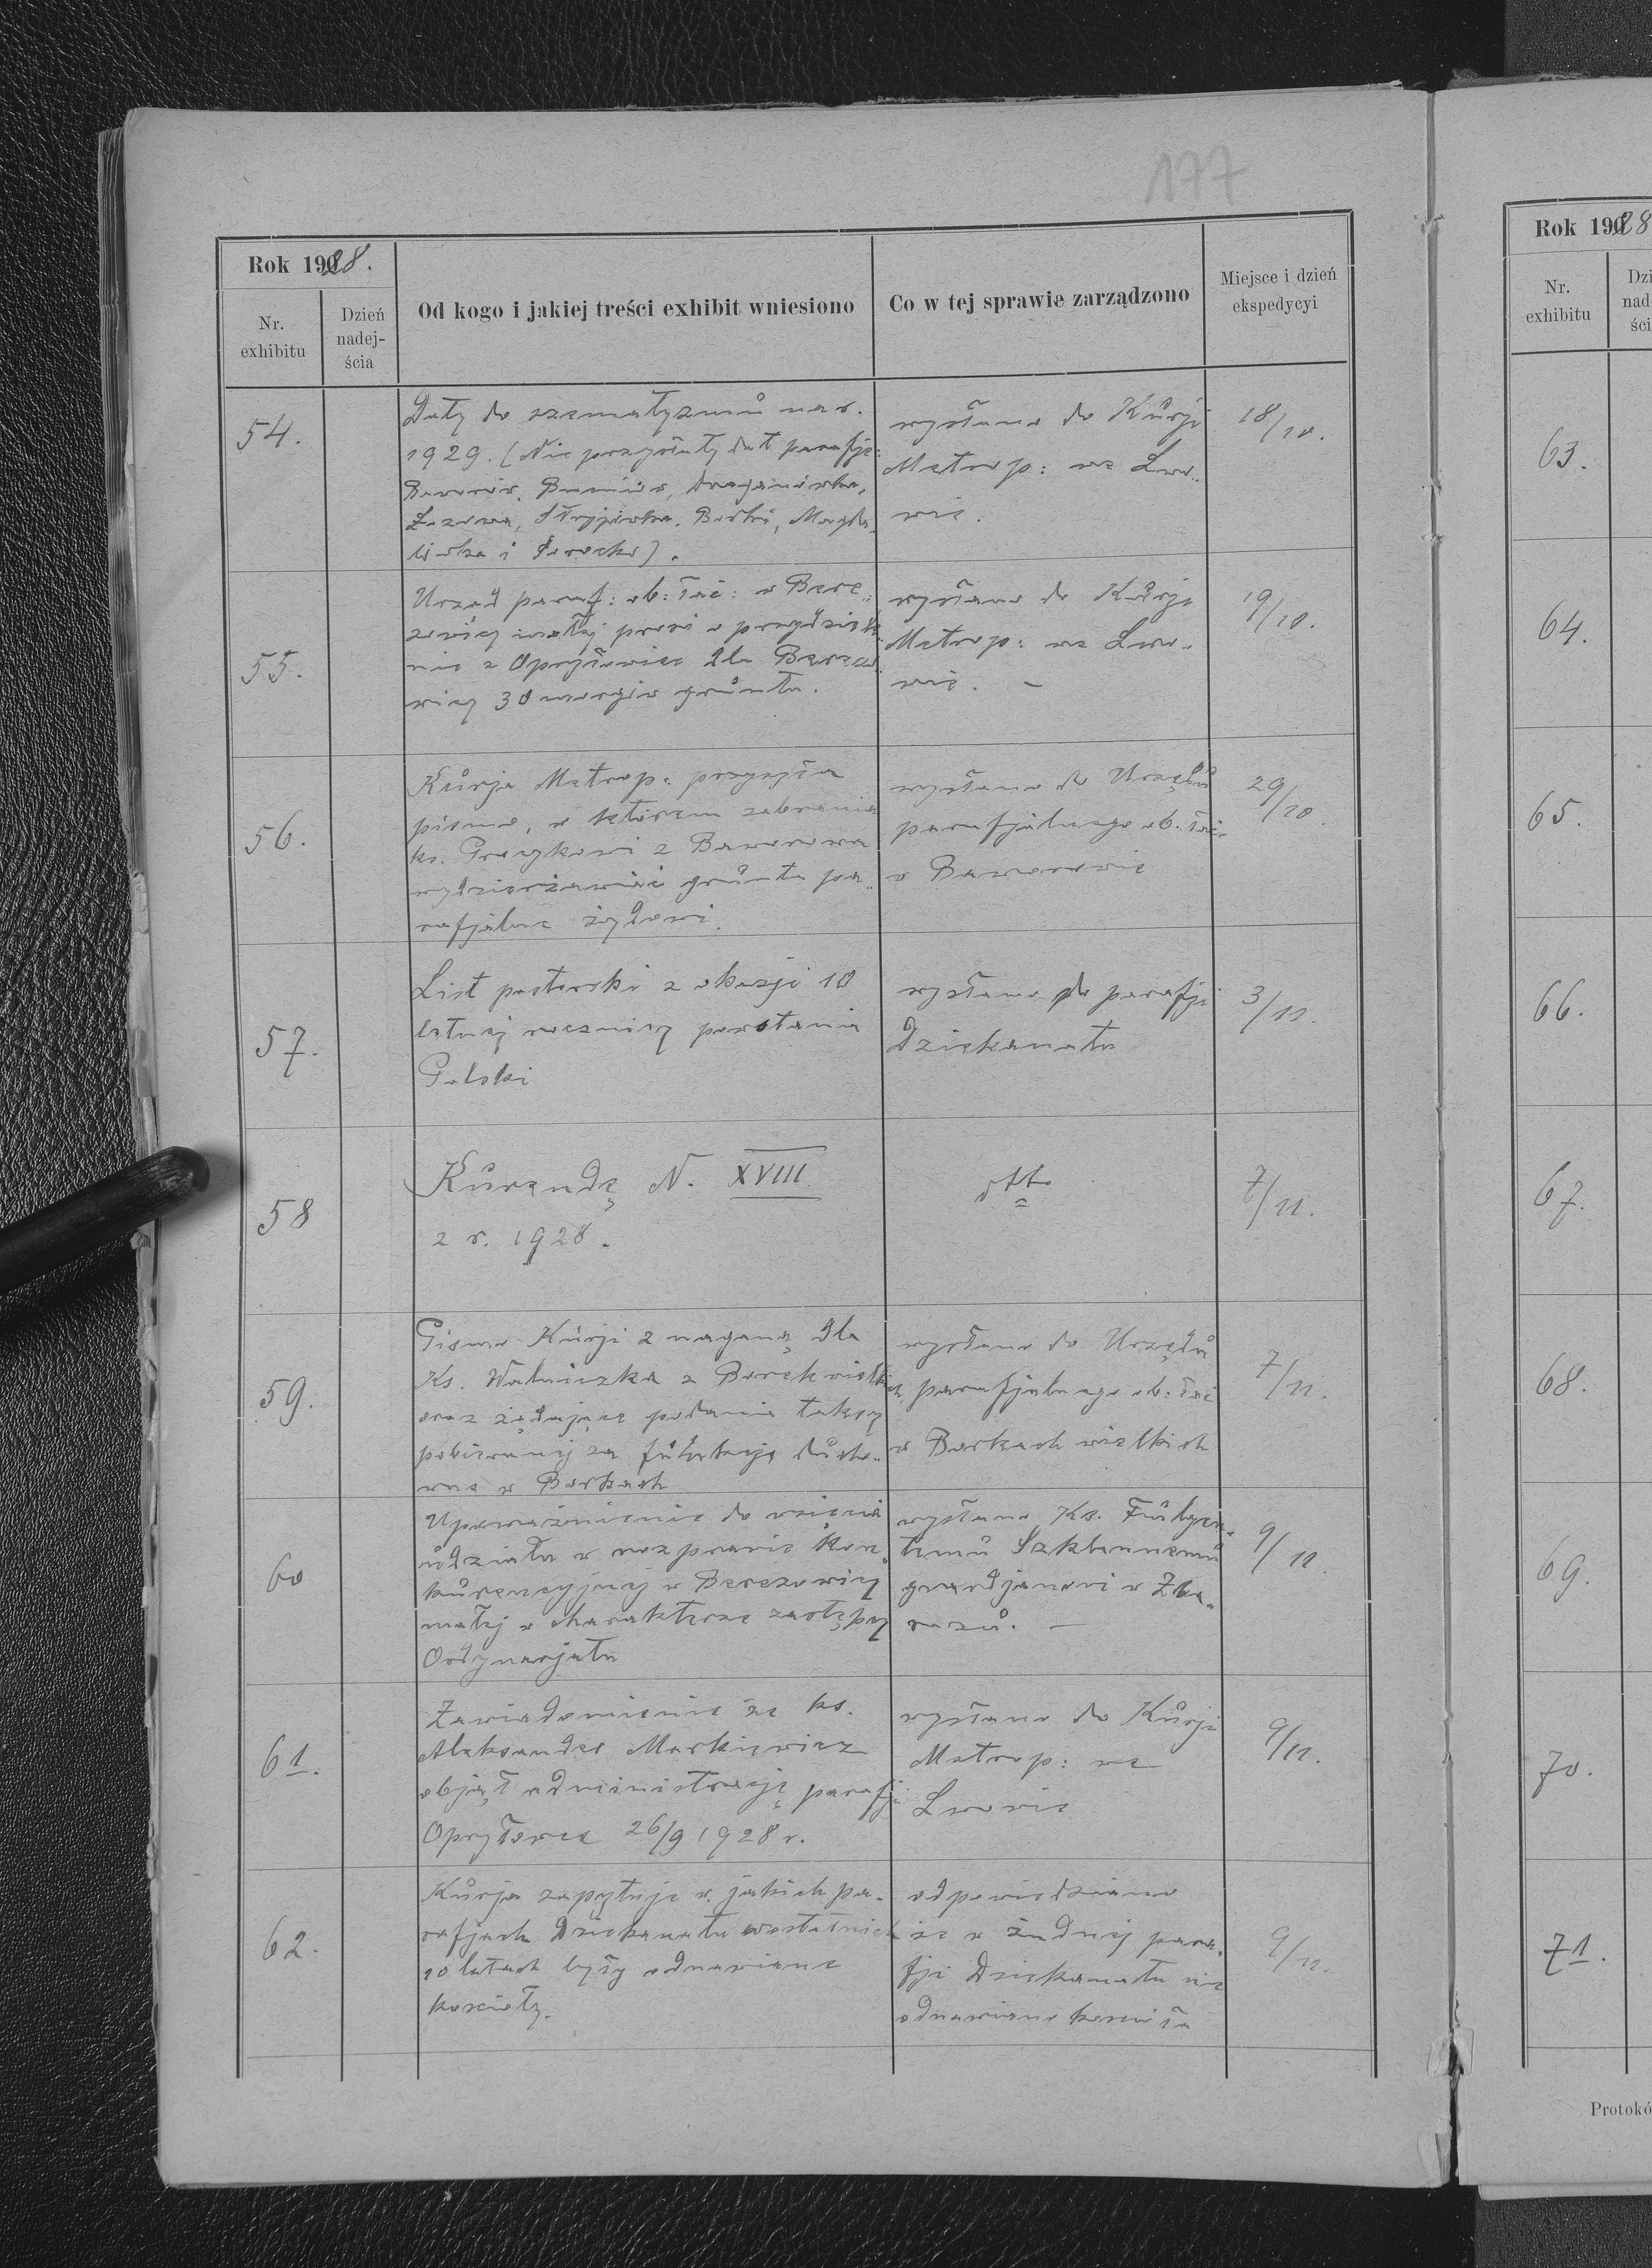 177
Rok 1928.
Nr. exhibitu
Dzień nadej- ścia
Od kogo i jakiej treści exhibit wniesiono
Co w tej sprawie zarządzono
Miejsce i dzień ekspedycyi
54.
Daty do szematyzmu na r.
1929. (Nie przysłały dat parafje:
Baworów, Bucniów, Draganówka,
Łozowa, Stryjówka, Borki, Magda-
lówka i Sorocko).
wysłano do Kurji
Metrop: we Lwo-
wie.
18/10.
55.
Urząd paraf: ob: łać: w Bere-
zowicy małej prosi o przydziele-
nie z Opryłowiec dla Berezo-
wicy 30 morgów gruntu.
wysłano do Kurji
Metrop: we Lwo-
wie. –
19/10.
56.
Kurja Metrop: przysyła
pismo, w którem zabrania
ks. z Baworowa
wydzierżawiać grunta pa-
rafjalne żydowi.
wysłano do Urzędu
parafjalnego ob. łać.
w Baworowie
29/10.
57.
List pasterski z okazji 10
letniej rocznicy powstania
Polski
wysłano do parafji
Dziekanatu
3/11.
58
Kurendę N. XVIII
z r. 1928.
dtto
7/11.
59.
Pismo Kurji z naganą dla
Ks. Walniczka z Borek wielkich
oraz żądające podania taksy
pobieranej za funkcje ducho-
wne w Borkach
wysłano do Urzędu
parafjalnego ob: łać
w Borkach wielkich
7/11.
60
Upoważnienie do wzięcia
udziału w rozprawie kon-
kurencyjnej w Berezowicy
małej w charakterze zastępcy
Ordynarjatu
wysłano Ks. Fulgen-
temu
gwardjanowi w Zba-
rażu. –
9/11
61.
Zawiadomienie że ks.
Aleksander Markiewicz
objął administrację parafji
Opryłowce 26/9 1928 r.
wysłano do Kurji
Metrop: we
Lwowie
9/11.
62.
Kurja zapytuje w jakich pa-
rafjach Dziekanatu w ostatnich
10 latach były odnawiane
kościoły.
odpowiedziano
że w żadnej para-
fji Dziekanatu nie
odnawiano kościoła
9/11.
Rok 1928
Nr. exhibitu
Dzi
nad
ści
63.
64.
65.
66.
67.
68.
69.
70.
71.
Protokó